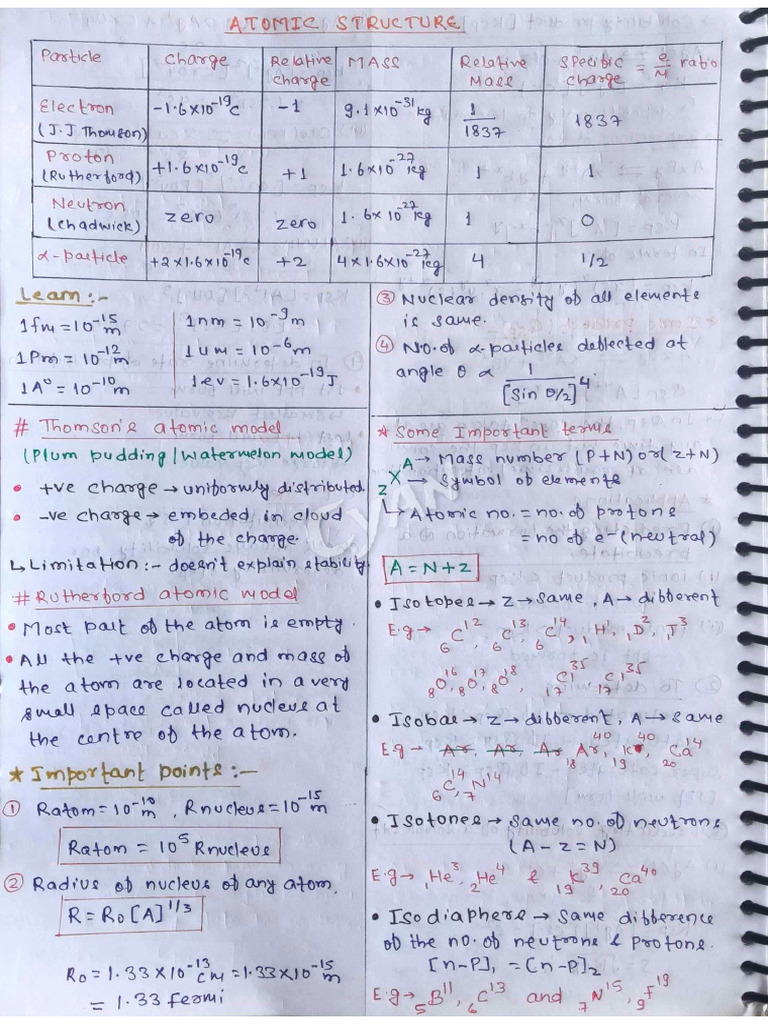 ATOMIC STRUCTURE
Particle Charge Relative Charge MASS Relative Mass Specific charge = e/M ratio
Electron (J.J Thomson) -1.6x10^-19 C -1 9.1x10^-31 kg 1/1837 1837
Proton (Rutherford) +1.6x10^-19 C +1 1.6x10^-27 kg 1 1
Neutron (Chadwick) zero zero 1.6x10^-27 kg 1 0
α-particle +2x1.6x10^-19 C +2 4x1.6x10^-27 kg 4 1/2
Learn :-
1fm = 10^-15 m
1Pm = 10^-12 m
1A° = 10^-10 m
1nm = 10^-9 m
1um = 10^-6 m
1ev = 1.6x10^-19 J
# Thomson's atomic model
(Plum pudding/Watermelon model)
• +ve charge → uniformly distributed.
• -ve charge → embeded in cloud
of the charge.
↳ Limitation :- doesn't explain stability
# Rutherford atomic model
• Most part of the atom is empty.
• All the +ve charge and mass of
the atom are located in a very
small space called nucleus at
the centre of the atom.
★ Important points :-
① Ratom = 10^-10 m, Rnucleus = 10^-15 m
Ratom = 10^5 Rnucleus
② Radius of nucleus of any atom.
R = R0 [A]^1/3
R0 = 1.33x10^-13 cm = 1.33x10^-15 m
= 1.33 Fermi
③ Nuclear density of all elements
is same.
④ No. of α-particles deflected at
angle θ α 1/[Sin θ/2]^4
★ Some Important terms
A → Mass number (P+N) or (z+N)
zX → Symbol of elements
↳ Atomic no. = no. of protons
= no of e- (neutral)
A = N+z
• Isotopes → Z → same, A → different
E.g → 6C^12, 6C^13, 6C^14, 1H^1, 1D^2, 1T^3
8O^16, 8O^17, 8O^18, 17Cl^35, 17Cl^35
• Isobar → Z → different, A → same
E.g → Ar, Ar, Ar 18Ar^40, 19K^40, 20Ca^14
6C^14, 7N^14
• Isotones → same no. of neutrons
(A - z = N)
E.g → 1He^3, 2He^4 & 19K^39, 20Ca^40
• Isodiaphers → same difference
of the no. of neutrons & protons.
[n-P]1 = [n-P]2
E.g → 5B^11, 6C^13 and 7N^15, 9F^19
CYAN